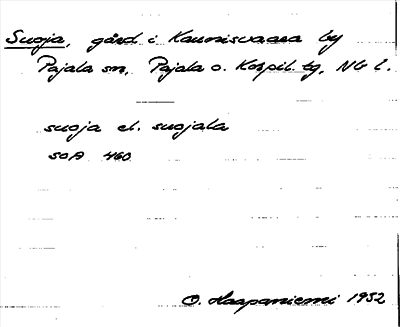 Suoja, gård i Kaunisvaara by
Pajala sn, Pajala o. Korpil. tg, Nb l.
suoja el. suojala
SOA 460
O. Haapaniemi 1952